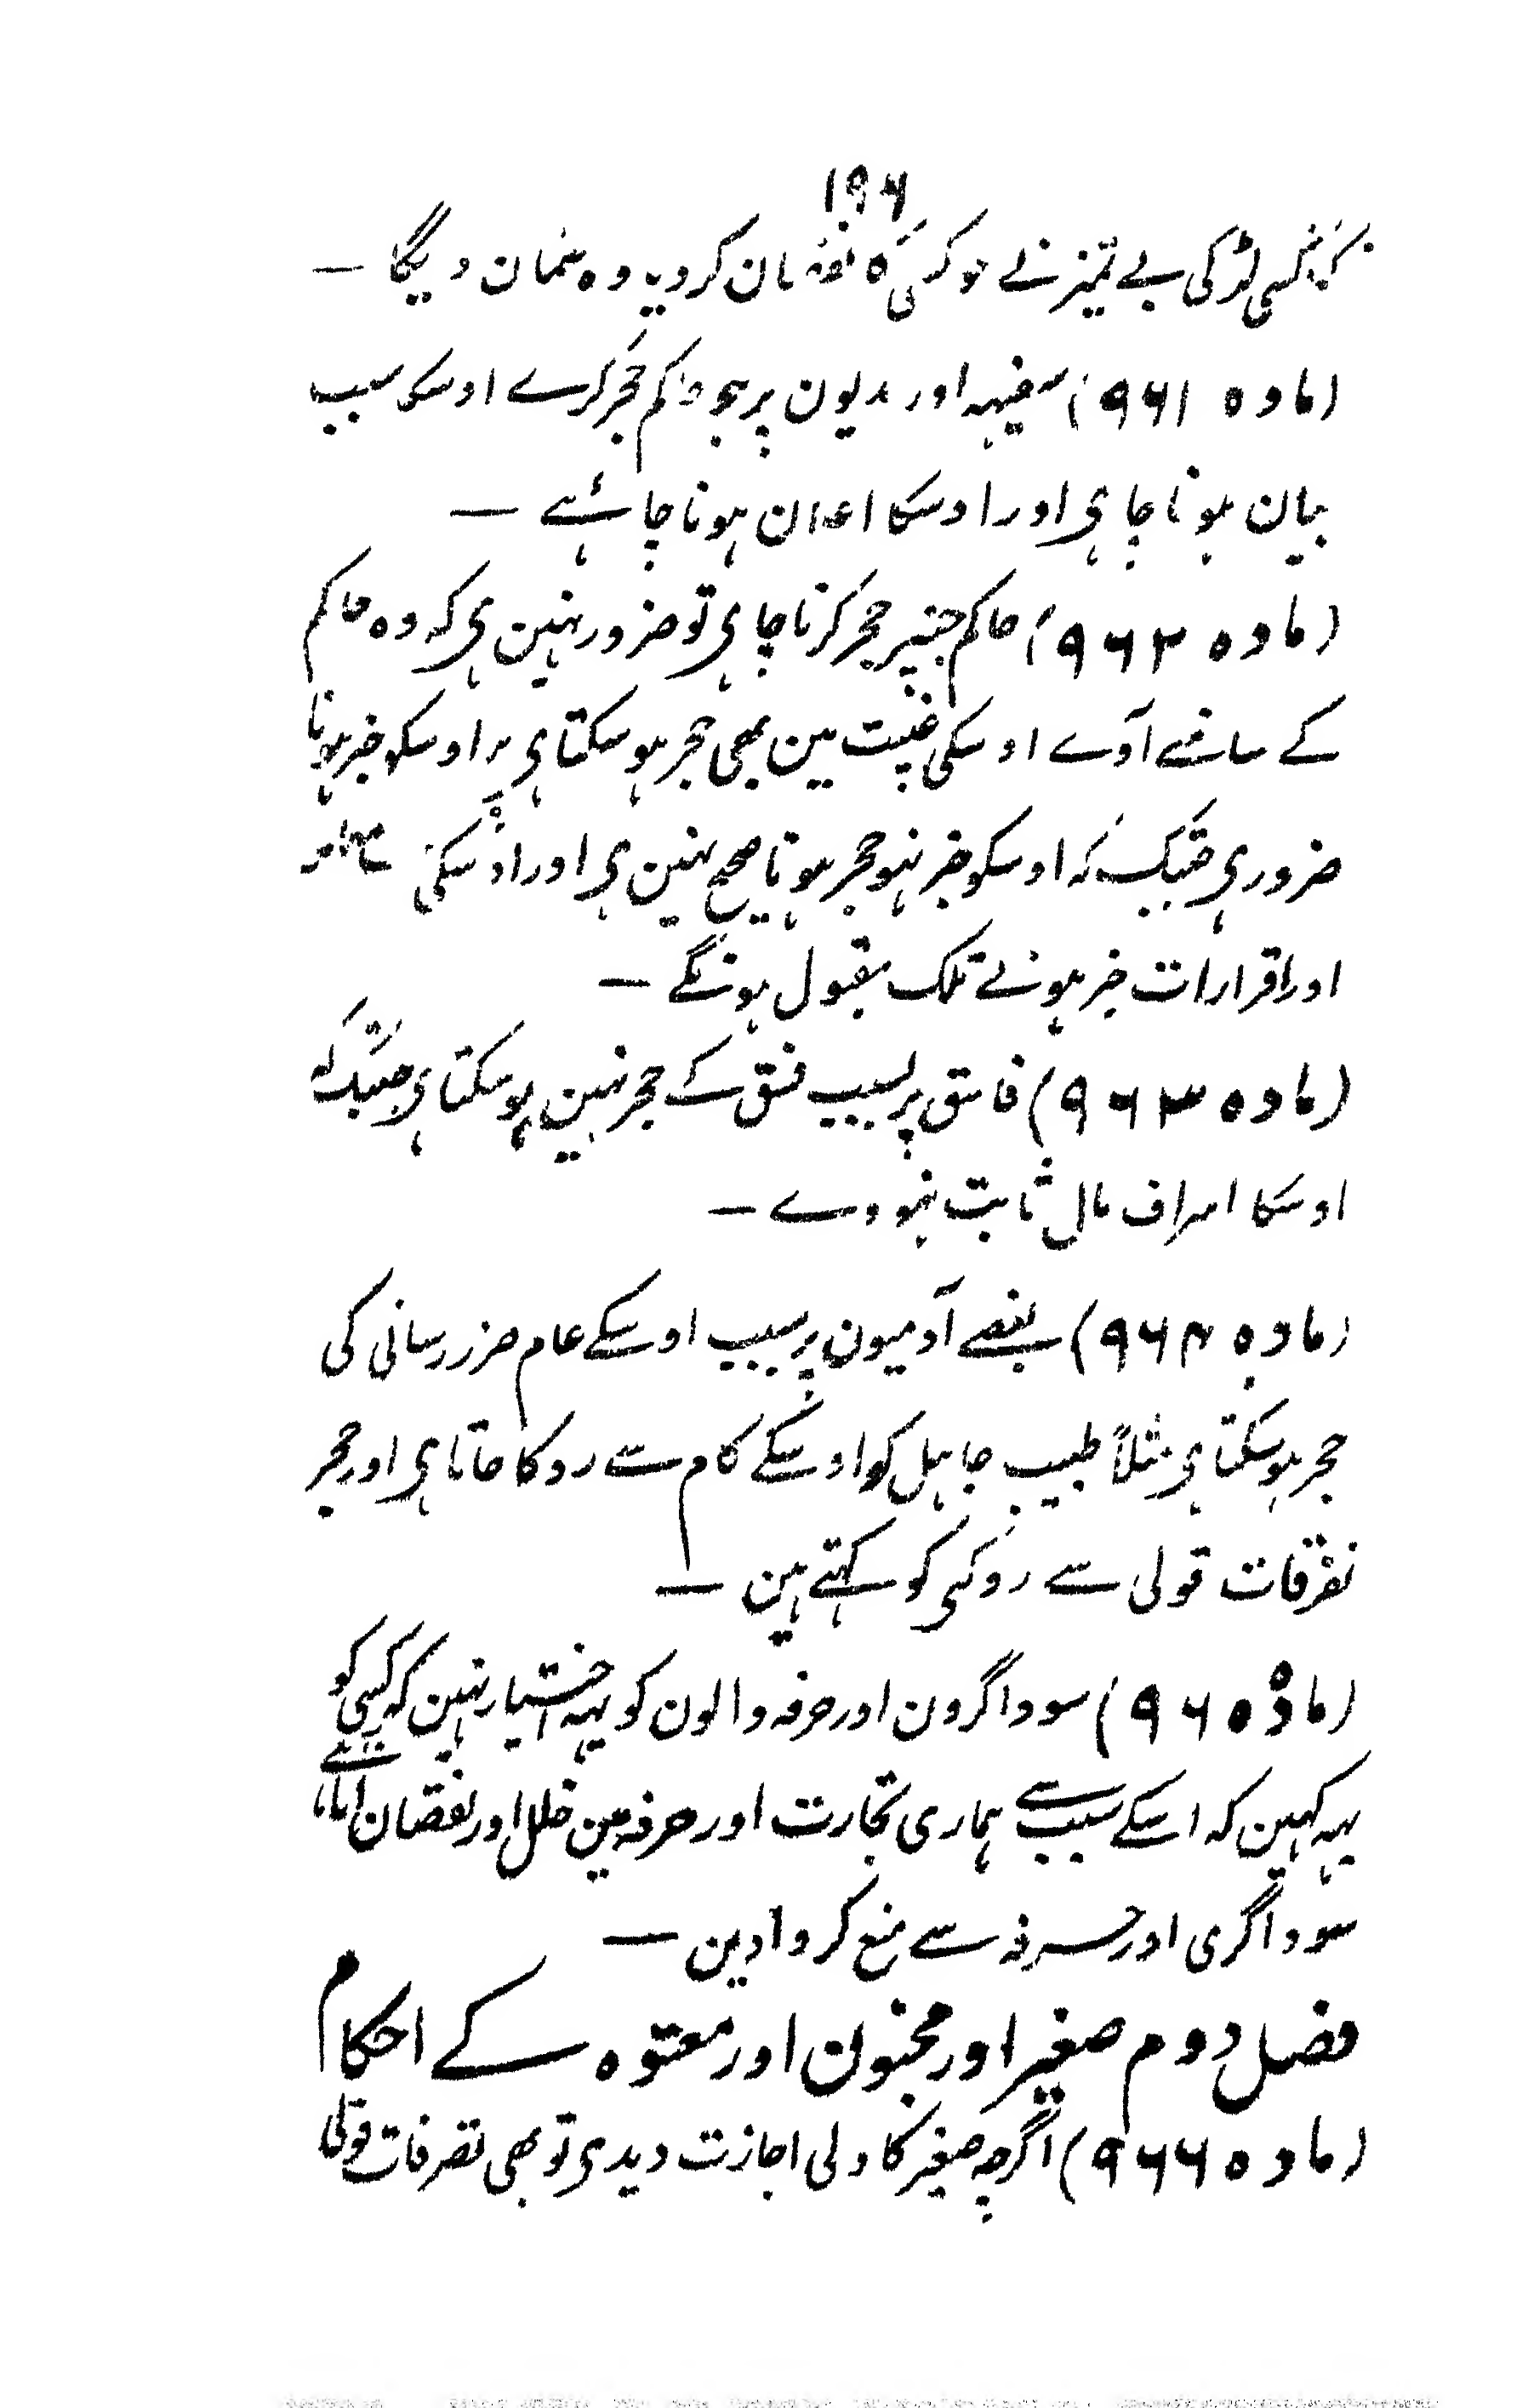 ۱۹۶
کسی لڑکی بے تمیز نے جو کسی کا نقصان کر دیا وہ ضمان دیگا —
(مادہ ۹۶۱) سفیہہ اور مدیون پر جو حاکم حجر کرے اوسکا سبب
بیان ہونا چاہی اور اوسکا اعلان ہونا چاہئے —
(مادہ ۹۶۲) حاکم جنپر حجر کرنا چاہی تو ضرور نہین ہی کہ وہ حاکم
کے سامنے آوے اوسکی غیبت مین بھی حجر ہو سکتا ہی پر اوسکو خبر ہونا
ضرور ہی جبتک کہ اوسکو خبر نہو حجر ہونا صحیح نہین ہی اور اوسکی
اور اقرارات خبر ہونے تلک مقبول ہونگے —
(مادہ ۹۶۳) فاسق پر بسبب فسق کے حجر نہین ہو سکتا ہی جبتک کہ
اوسکا اسراف مال ثابت نہووے —
(مادہ ۹۶۴) بعضے آدمیون پر بسبب اوسکے عام ضرر رسانی کی
حجر ہو سکتا ہی مثلاً طبیب جاہل کو اوسکے کام سے روکا جاتا ہی اور حجر
تصرفات قولی سے روکنی کو کہتے ہین —
(مادہ ۹۶۵) سوداگرون اور حرفہ والون کو یہہ اختیار نہین کہ کسی کو
یہہ کہین کہ اسکے سبب سے ہماری تجارت اور حرفہ مین خلل اور نقصان آتا ہے
سوداگری اور حرفہ سے منع کروا دین —
فصل دوم صغیر اور مجنون اور معتوہ کے احکام
(مادہ ۹۶۶) اگرچہ صغیر کا ولی اجازت دیدی تو بھی تصرفات قولی